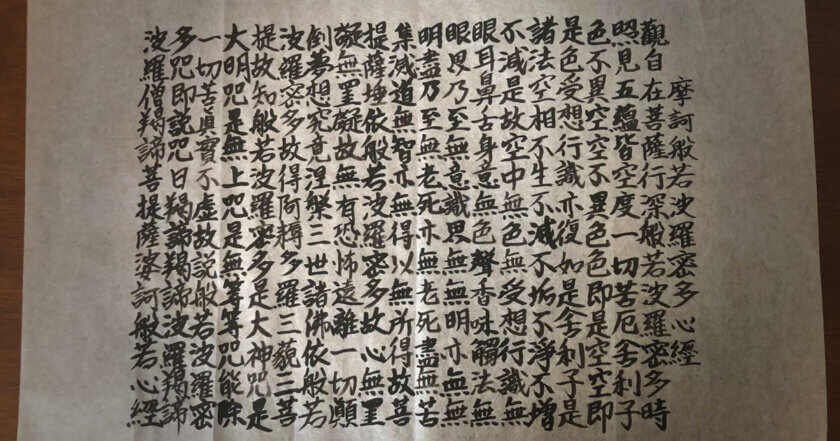 摩訶般若波羅密多心經
觀自在菩薩行深般若波羅密多時
照見五蘊皆空度一切苦厄舍利子
色不異空空不異色色即是空空即
是色受想行識亦復如是舍利子是
諸法空相不生不滅不垢不淨不增
不減是故空中無色無受想行識無
眼耳鼻舌身意無色聲香味觸法無
眼界乃至無意識界無無明亦無無
明盡乃至無老死亦無老死盡無苦
集滅道無智亦無得以無所得故菩
提薩埵依般若波羅密多故心無罣
礙無罣礙故無有恐怖遠離一切顚
倒夢想究竟涅槃三世諸佛依般若
波羅密多故得阿耨多羅三藐三菩
提故知般若波羅密多是大神咒是
大明咒是無上咒是無等等咒能除
一切苦眞實不虛故説般若波羅密
多咒即説咒曰羯諦羯諦波羅羯諦
波羅僧羯諦菩提薩婆訶般若心經